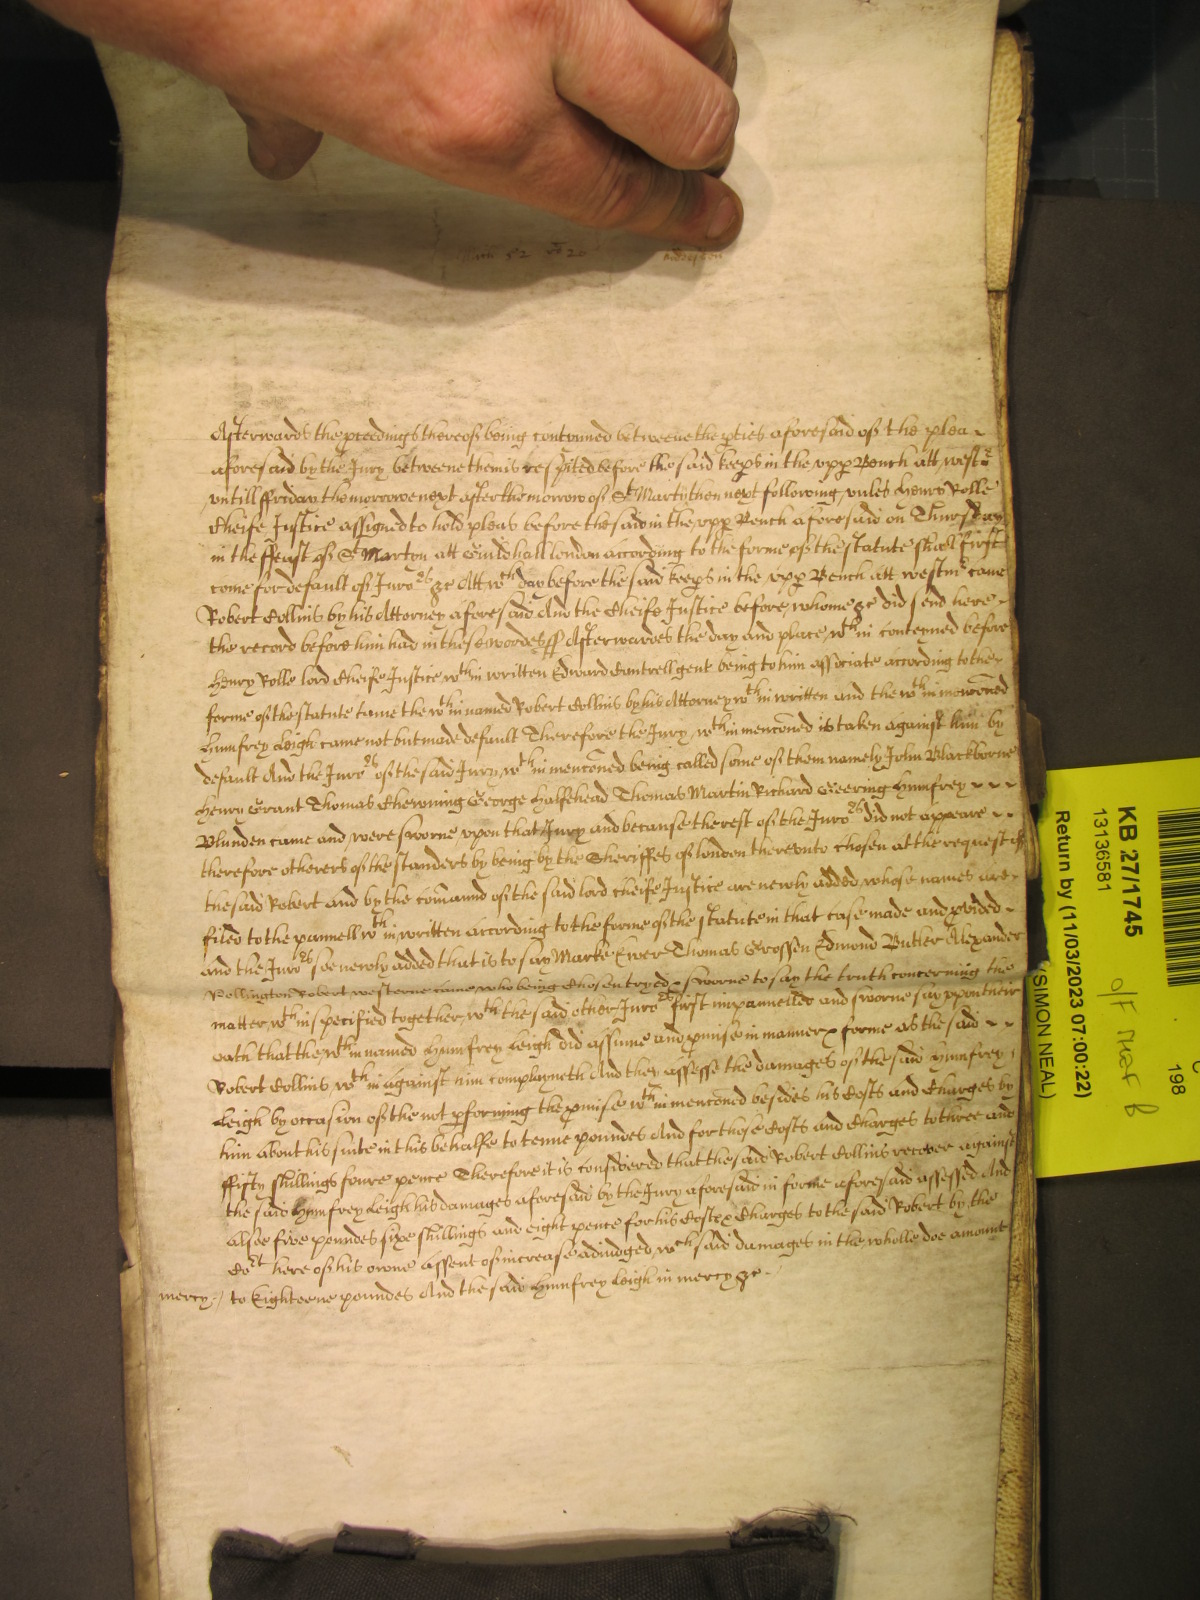 Afterwards the pceedings thereof being contynued betweene the pties aforesaid of the plea
aforesaid by the Jury betweene them is respited before the said keeps in the upp Bench att westm
untill ffriday the morrowe next after the morrow of St Martyn then next following unles Henry Rolle
Cheife Justice assigned to hold pleas before the said in the upp Bench aforesaid on Thursday
in the ffeast of St Marton att Guildhall london according to the forme of the statute shall first
come for default of Juro^rs &c Att w^ch day before the said keeps in the upp Bench att westm^r came
Robert Collins by his Attorney aforesaid And the Cheife Justice before whome &c did send here
the record before him had in these wordes ss Afterwardes the day and place w^thin conteyned before
Henry Rolle lord Cheife Justice w^thin written Edward Cantrell gent being to him associate according to the
forme of the statute came the w^thin named Robert Collins by his Attorney w^thin written and the w^thin menconed
Humfrey Leigh came not but made default Therefore the Jury w^thin menconed is taken against him by
default And the Juro^rs of the said Jury w^thin menconed being called some of them namely John Blackborne
Henry Grant Thomas Chewning George Halfehead Thomas Martin Richard Geering Humfrey
Blunden came and were sworne upon that Jury and because the rest of the Juro^rs did not appeare
therefore otherers of the standers by being by the Sheriffes of london thereunto chosen at the request of
the said Robert and by the comaund of the said lord cheife Justice are newly added whose names are
filed to the pannell w^thin written according to the forme of the statute in that case made and pvided
and the Juro^rs soe newly added that is to say Marke Ewer Thomas Crossen Edmond Butler Alexander
Pollington Robert westerne came who being chosen tryed & sworne to say the truth concerning the
matter w^thin specified together w^th the said other Juro^rs first impannelled and sworne say upon their
oath that the w^thin named Humfrey Leigh did assume and pmise in manner & forme as the said
Robert Collins w^thin against him complayneth And they assesse the damages of the said Humfrey
Leigh by occasion of the not pforming the pmise w^thin menconed besides his Costs and Charges by
him about his suite in this behalfe to tenne poundes And for those Costs and Charges to three and
ffifty shillings foure pence Therefore it is considered that the said Robert Collins recover against
the said Humfrey Leigh his damages aforesaid by the Jury aforesaid in forme aforesaid assessed And
alsoe five poundes sixe shillings and eight pence for his Costs & Charges to the said Robert by the
Co^rt here of his owne assent of increase adiudged w^ch said damages in the wholle doe amount
mercy to Eighteene poundes And the said Humfrey Leigh in mercy &c
KB 27/1745
13136581
Return by (11/03/2023 07:00:22)
(SIMON NEAL)
198